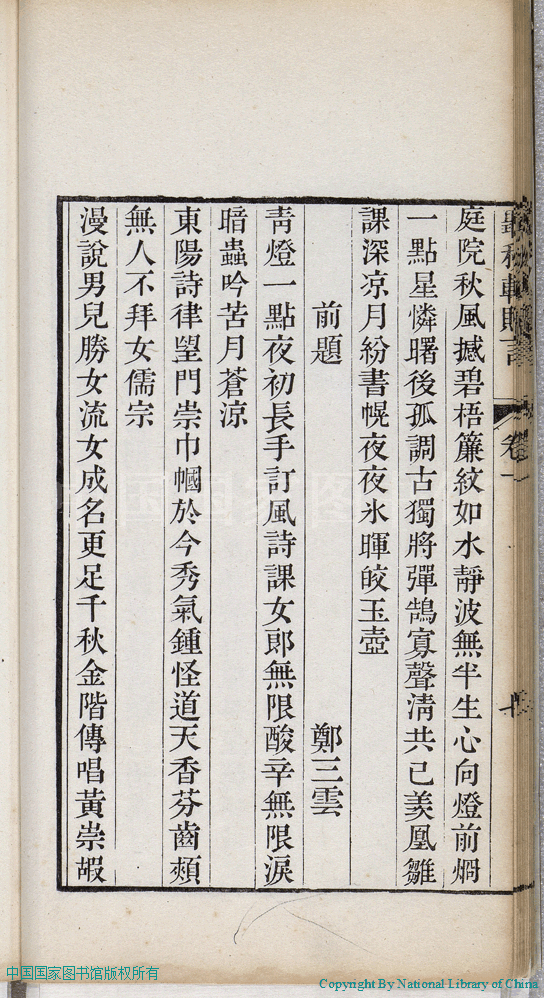 庭院秋風撼碧梧簾紋如水靜波無半生心向燈前烱
一點星憐曙後孤調古獨將彈鵠寡聲淸共已羨凰雛
課深涼月紛書幌夜夜氷暉皎玉壺
前題
鄭三雲
靑燈一點夜初長手訂風詩課女郎無限酸辛無限淚
暗蟲吟苦月蒼涼
東陽詩律望門崇巾幗於今秀氣鍾怪道天香芬齒頰
無人不拜女儒宗
漫說男兒勝女流女成名更足千秋金階傳唱黃崇嘏
卷一
中国国家图书馆版权所有
Copyright By National Library of China